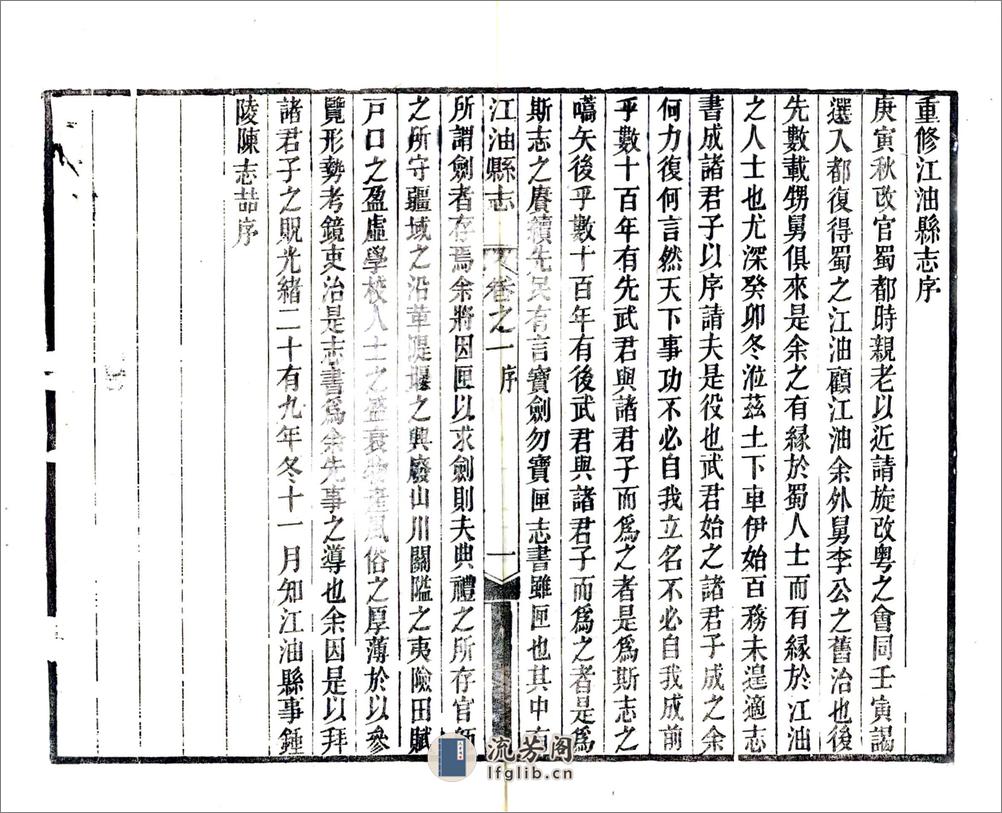 重修江油縣志序
庚寅秋改官蜀都時親老以近請旋改粤之會同壬寅謁
選入都復得蜀之江油顧江油余外舅李公之舊治也後
先數載甥舅俱來是余之有緣於蜀人士而有緣於江油
之人士也尤深癸卯冬涖茲土下車伊始百務未遑適志
書成諸君子以序請夫是役也武君始之諸君子成之余
何力復何言然天下事功不必自我立名不必自我成前
乎數十百年有先武君與諸君子而爲之者是爲斯志之
嚆矢後乎數十百年有後武君與諸君子而爲之者是爲
斯志之賡續先民有言寶劍勿寶匣志書雖匣也其中有
江油縣志 卷之一 序 一
所謂劍者存焉余將因匣以求劍則夫典禮之所存官師
之所守疆域之沿革堤堰之興廢山川關隘之夷險田賦
戶口之盈虛學校人士之盛衰物產風俗之厚薄於以參
覽形勢考鏡吏治是志書爲余先事之導也余因是以拜
諸君子之貺光緒二十有九年冬十一月知江油縣事鍾
陵陳志喆序
流芳阁
lfglib.cn